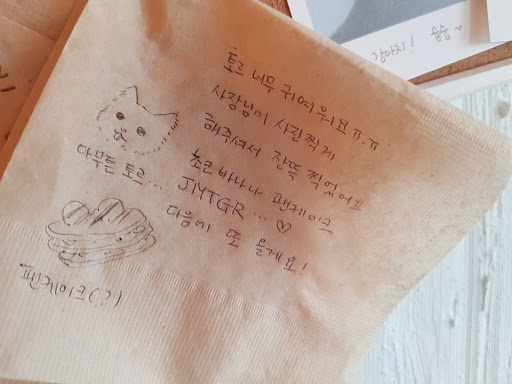 강아지! 숨숨~
토르 너무 귀여워요ㅠ.ㅠ
사장님이 사진찍게
해주셔서 잔뜩 찍었어요
초코바나나 팬케이크
JMTGR ... ♡
다음에 또 올게요!
아무튼 토르...
팬케이크(?)